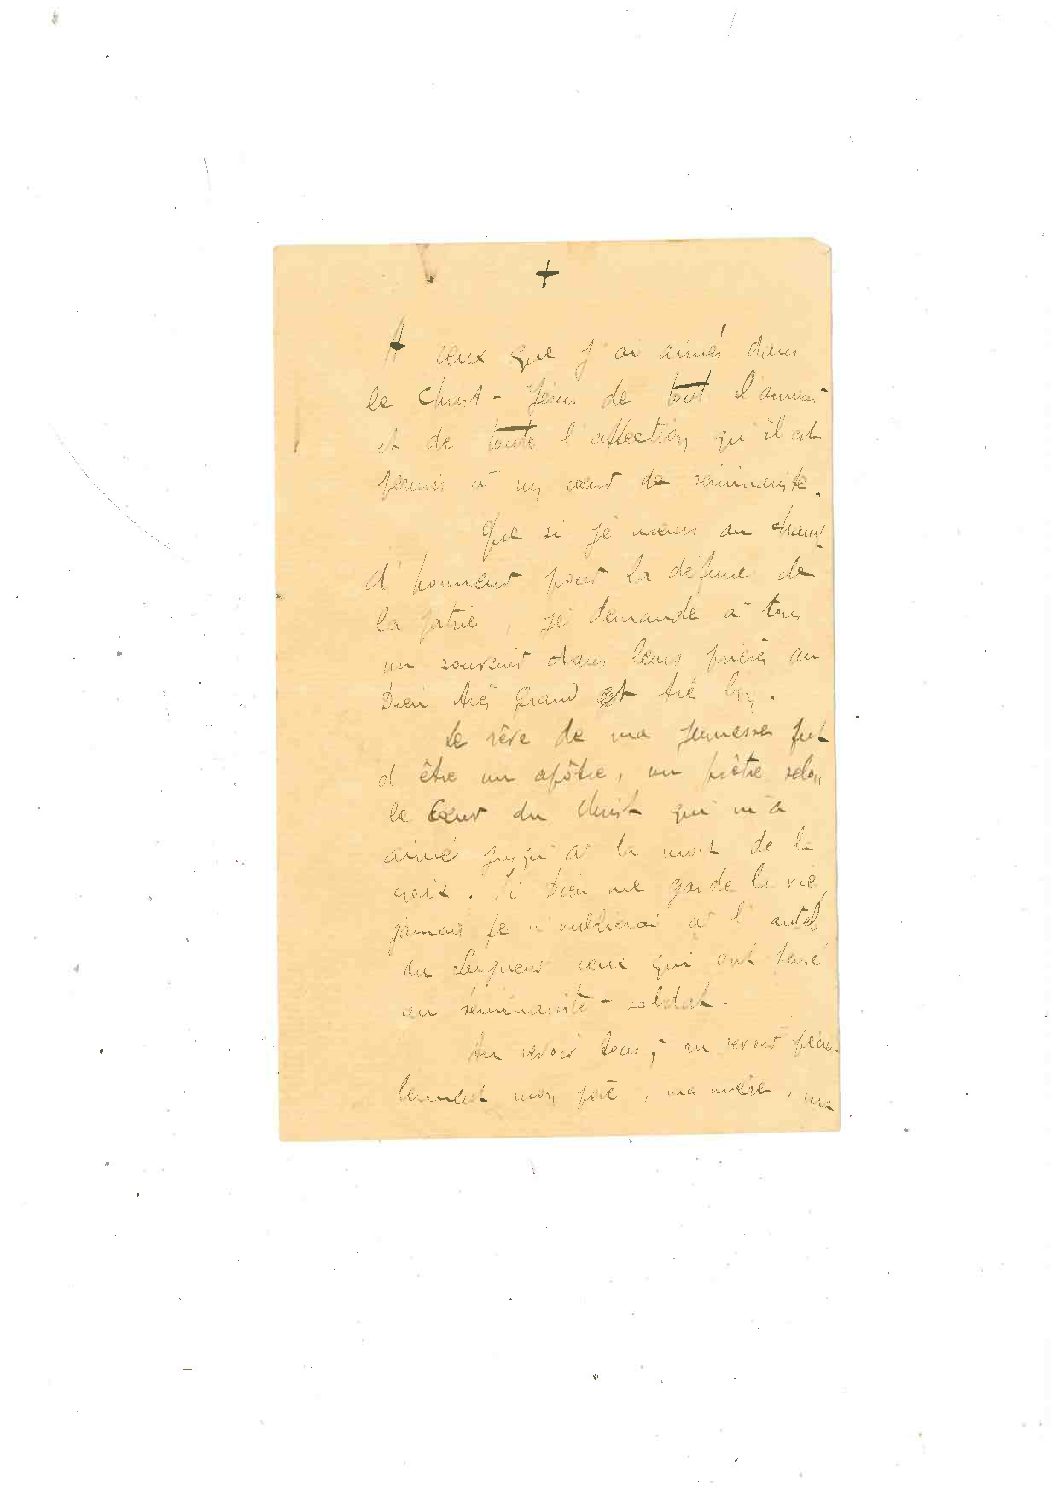 +
A ceux que j'ai aimés dans
le Christ-Jésus de tout l'amour
et de toute l'affection qu'il est
permis à un cœur de séminariste.
Que si je meurs au champ
d'honneur pour la défense de
la patrie, je demande à tous
un souvenir dans leurs prières au
Dieu très Grand et très bon.
Le rêve de ma jeunesse fut
d'être un apôtre, un prêtre selon
le Cœur du Christ qui m'a
aimé jusqu'à la mort de la
croix. Si Dieu me garde la vie,
jamais je n'oublierai à l'autel
du Seigneur ceux qui ont
au séminariste-soldat.
Au revoir tous, au revoir
mon père, ma mère,